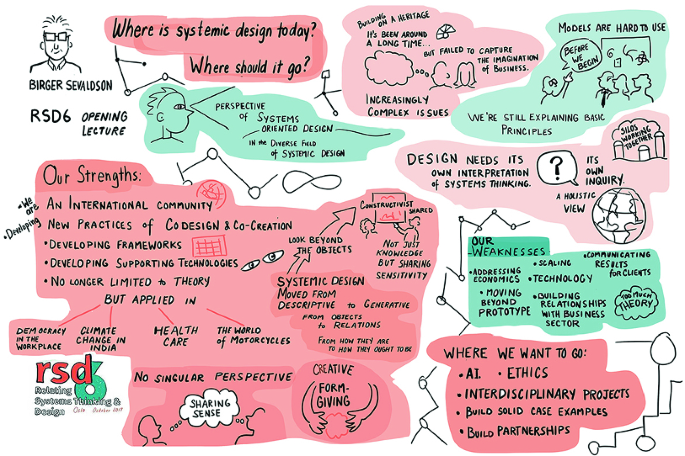 Where is systemic design today?
Where should it go?
BIRGER SEVALDSON
RSD6 OPENING
LECTURE
PERSPECTIVE
OF SYSTEMS
ORIENTED DESIGN
IN THE DIVERSE FIELD
OF SYSTEMIC DESIGN
BUILDING ON A HERITAGE
IT'S BEEN AROUND
A LONG TIME...
BUT FAILED TO CAPTURE
THE IMAGINATION
OF BUSINESS.
INCREASINGLY
COMPLEX ISSUES
MODELS ARE HARD TO USE
BEFORE
WE
BEGIN
WE'RE STILL EXPLAINING BASIC
PRINCIPLES
DESIGN NEEDS ITS
OWN INTERPRETATION
OF SYSTEMS THINKING.
?
ITS
OWN
INQUIRY.
A HOLISTIC
VIEW
SILOS
WORKING
TOGETHER
OUR STRENGTHS:
• WE
ARE
DEVELOPING
AN INTERNATIONAL COMMUNITY
NEW PRACTICES OF CODESIGN & CO-CREATION
• DEVELOPING FRAMEWORKS
• DEVELOPING SUPPORTING TECHNOLOGIES
• NO LONGER LIMITED TO THEORY
BUT APPLIED IN
DEMOCRACY
IN THE
WORKPLACE
CLIMATE
CHANGE IN
INDIA
HEALTH
CARE
THE WORLD
OF MOTORCYCLES
LOOK BEYOND
THE OBJECTS
CONSTRUCTIVIST
SHARED
NOT JUST
KNOWLEDGE
BUT SHARING
SENSITIVITY
SYSTEMIC DESIGN
MOVED FROM
DESCRIPTIVE TO GENERATIVE
FROM OBJECTS
TO RELATIONS
FROM HOW THEY ARE
TO HOW THEY OUGHT TO BE
OUR
WEAKNESSES
• ADDRESSING
ECONOMICS
• MOVING
BEYOND
PROTOTYPE
• SCALING
• TECHNOLOGY
• BUILDING
RELATIONSHIPS
WITH BUSINESS
SECTOR
• COMMUNICATING
RESULTS
FOR CLIENTS
TOO MUCH
THEORY
rsd6
Relating
Systems Thinking &
Design
Oslo October 2017
NO SINGULAR PERSPECTIVE
SHARING
SENSE
CREATIVE
FORM-
GIVING
WHERE WE WANT TO GO:
• A.I. • ETHICS
• INTERDISCIPLINARY PROJECTS
• BUILD SOLID CASE EXAMPLES
• BUILD PARTNERSHIPS